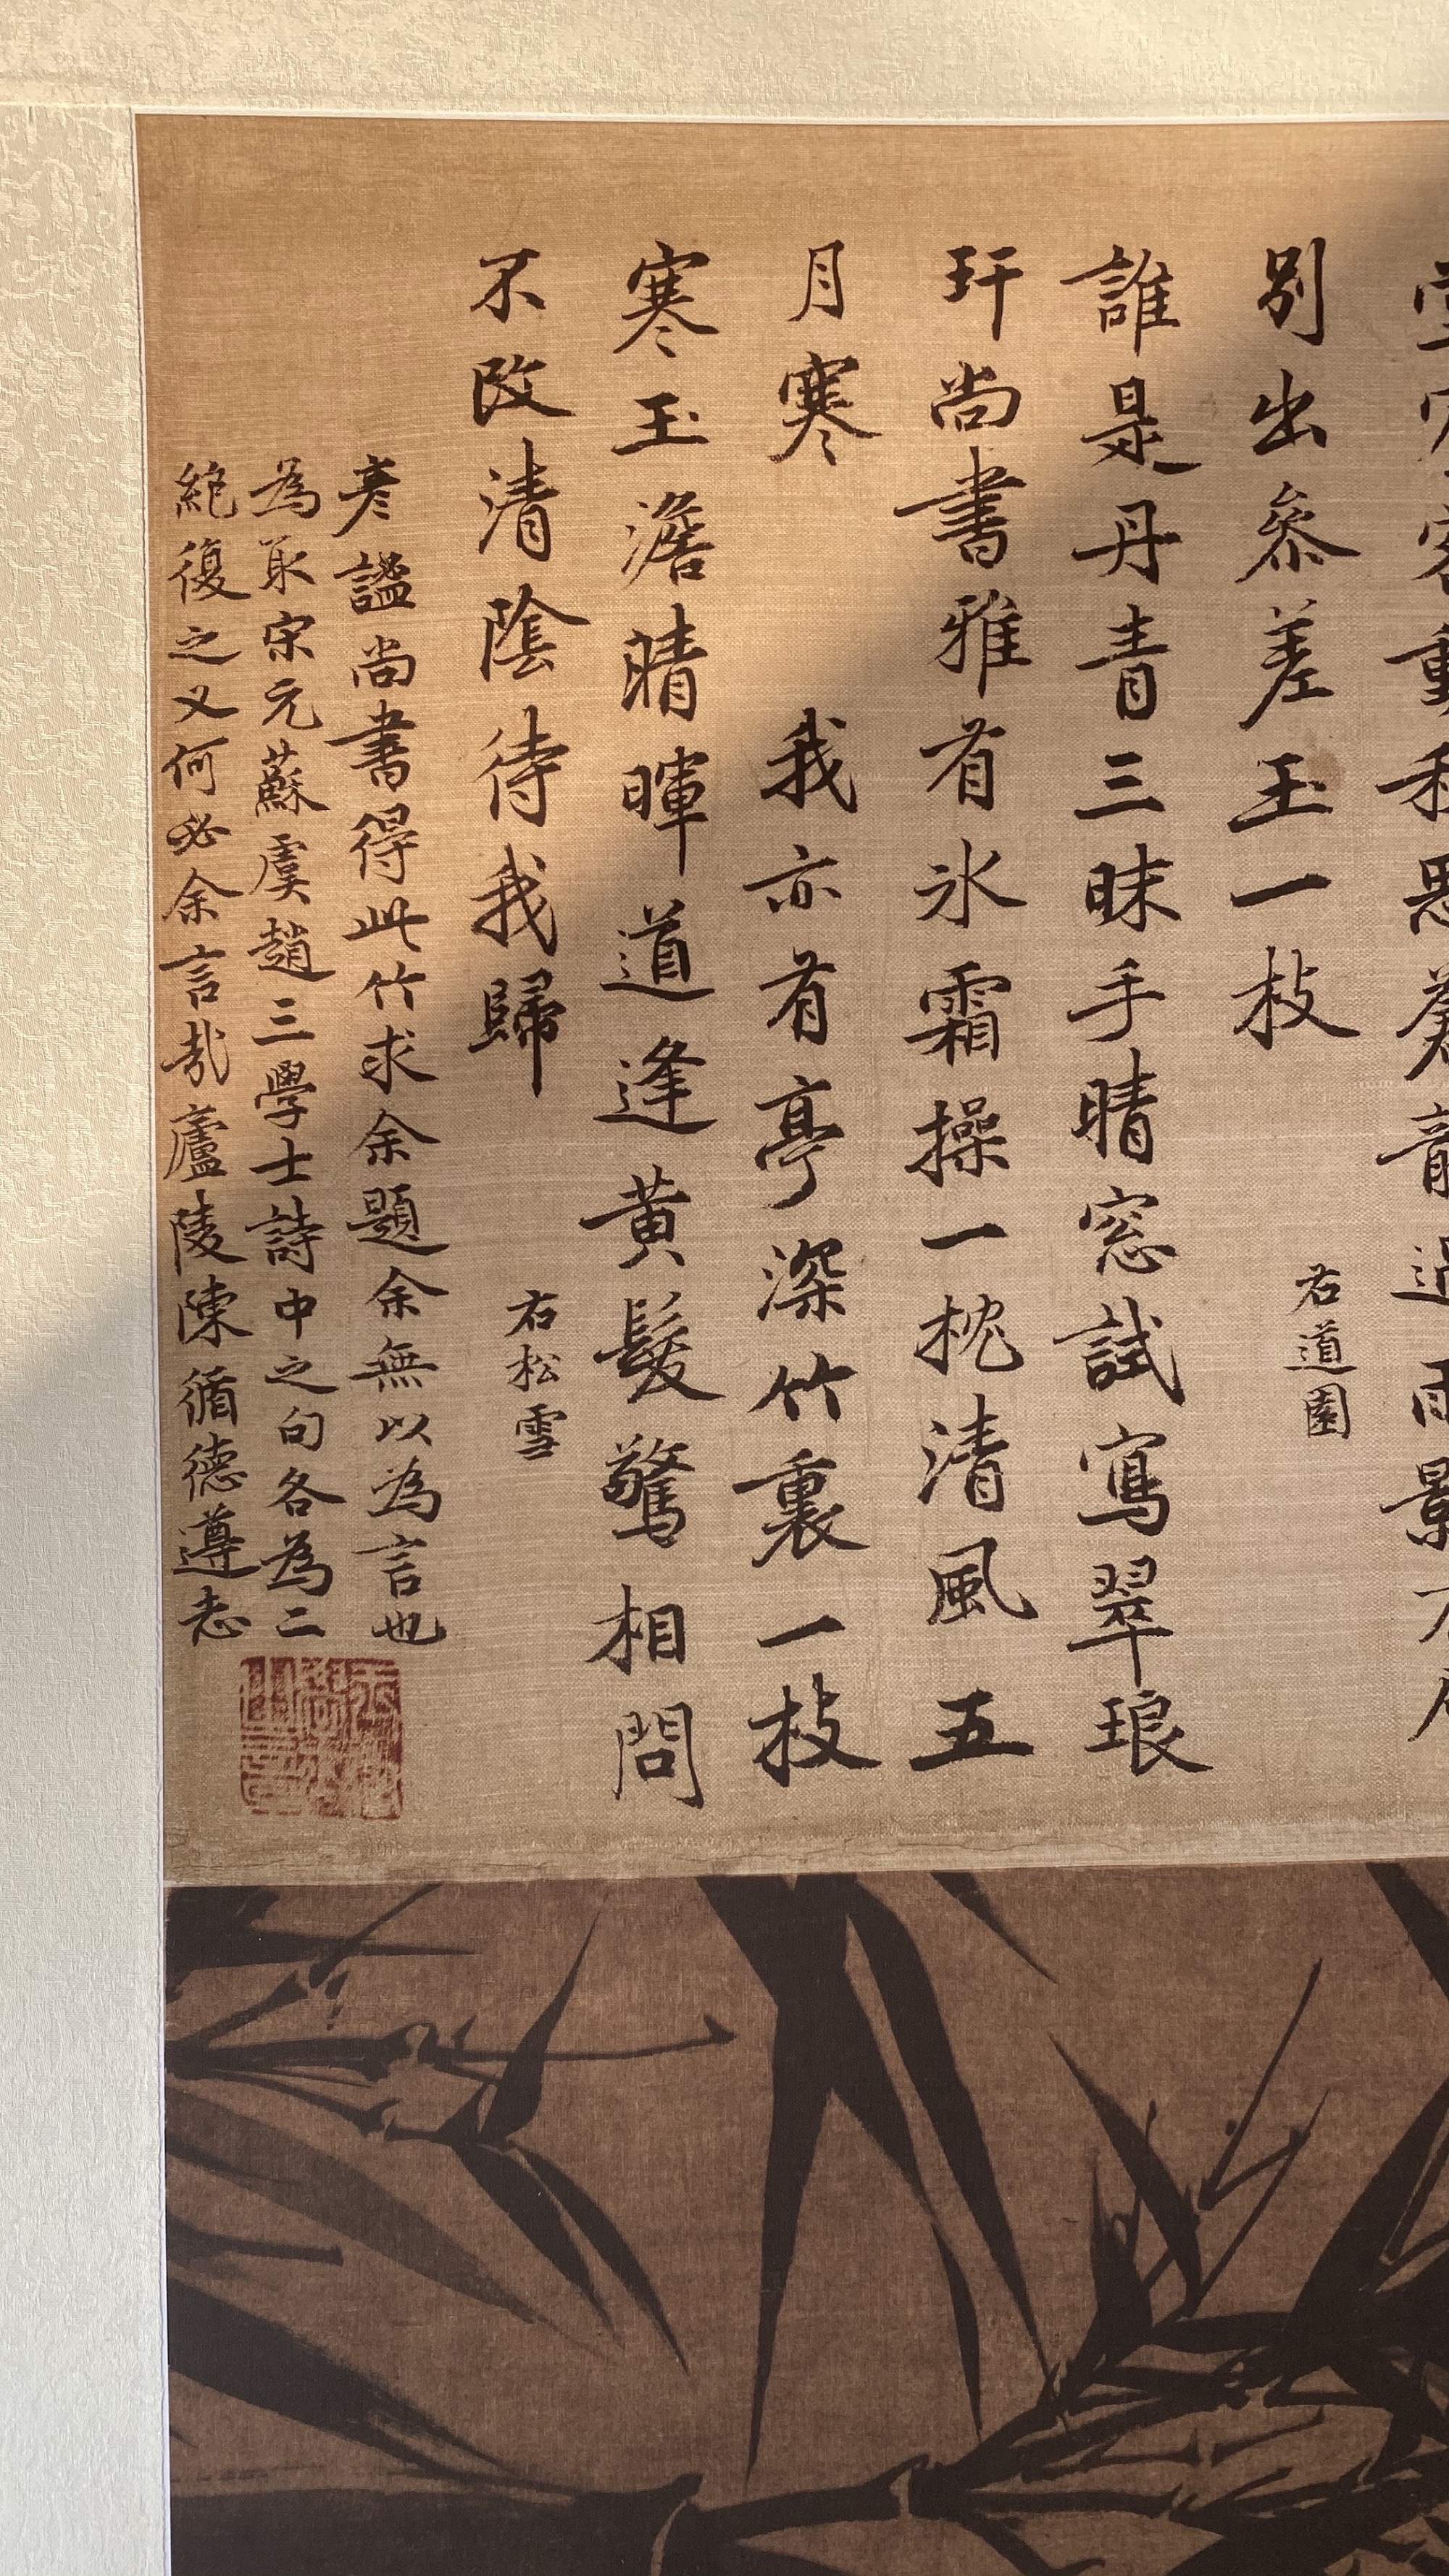 堂
動
過雨影
別出參差玉一枝
右道園
誰是丹青三昧手晴窓試寫翠琅
玕尚書雅有氷霜操一枕清風五
月寒
我亦有亭深竹裏一枝
寒玉澹晴暉道逢黃髮驚相問
不改清陰待我歸
右松雪
彥謐尚書得此竹求余題余無以為言也
為取宋元蘇虞趙三學士詩中之句各為二
絕復之又何必余言哉廬陵陳循德遵志